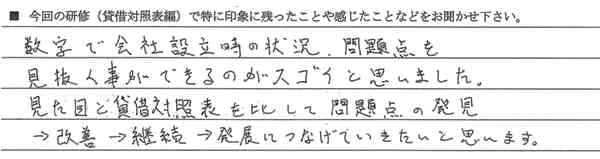 ■ 今回の研修（貸借対照表編）で特に印象に残ったことや感じたことなどをお聞かせ下さい。
数字で会社設立時の状況、問題点を
見抜く事ができるのがスゴイと思いました。
見た目と貸借対照表を比して問題点の発見
→改善→継続→発展につなげていきたいと思います。